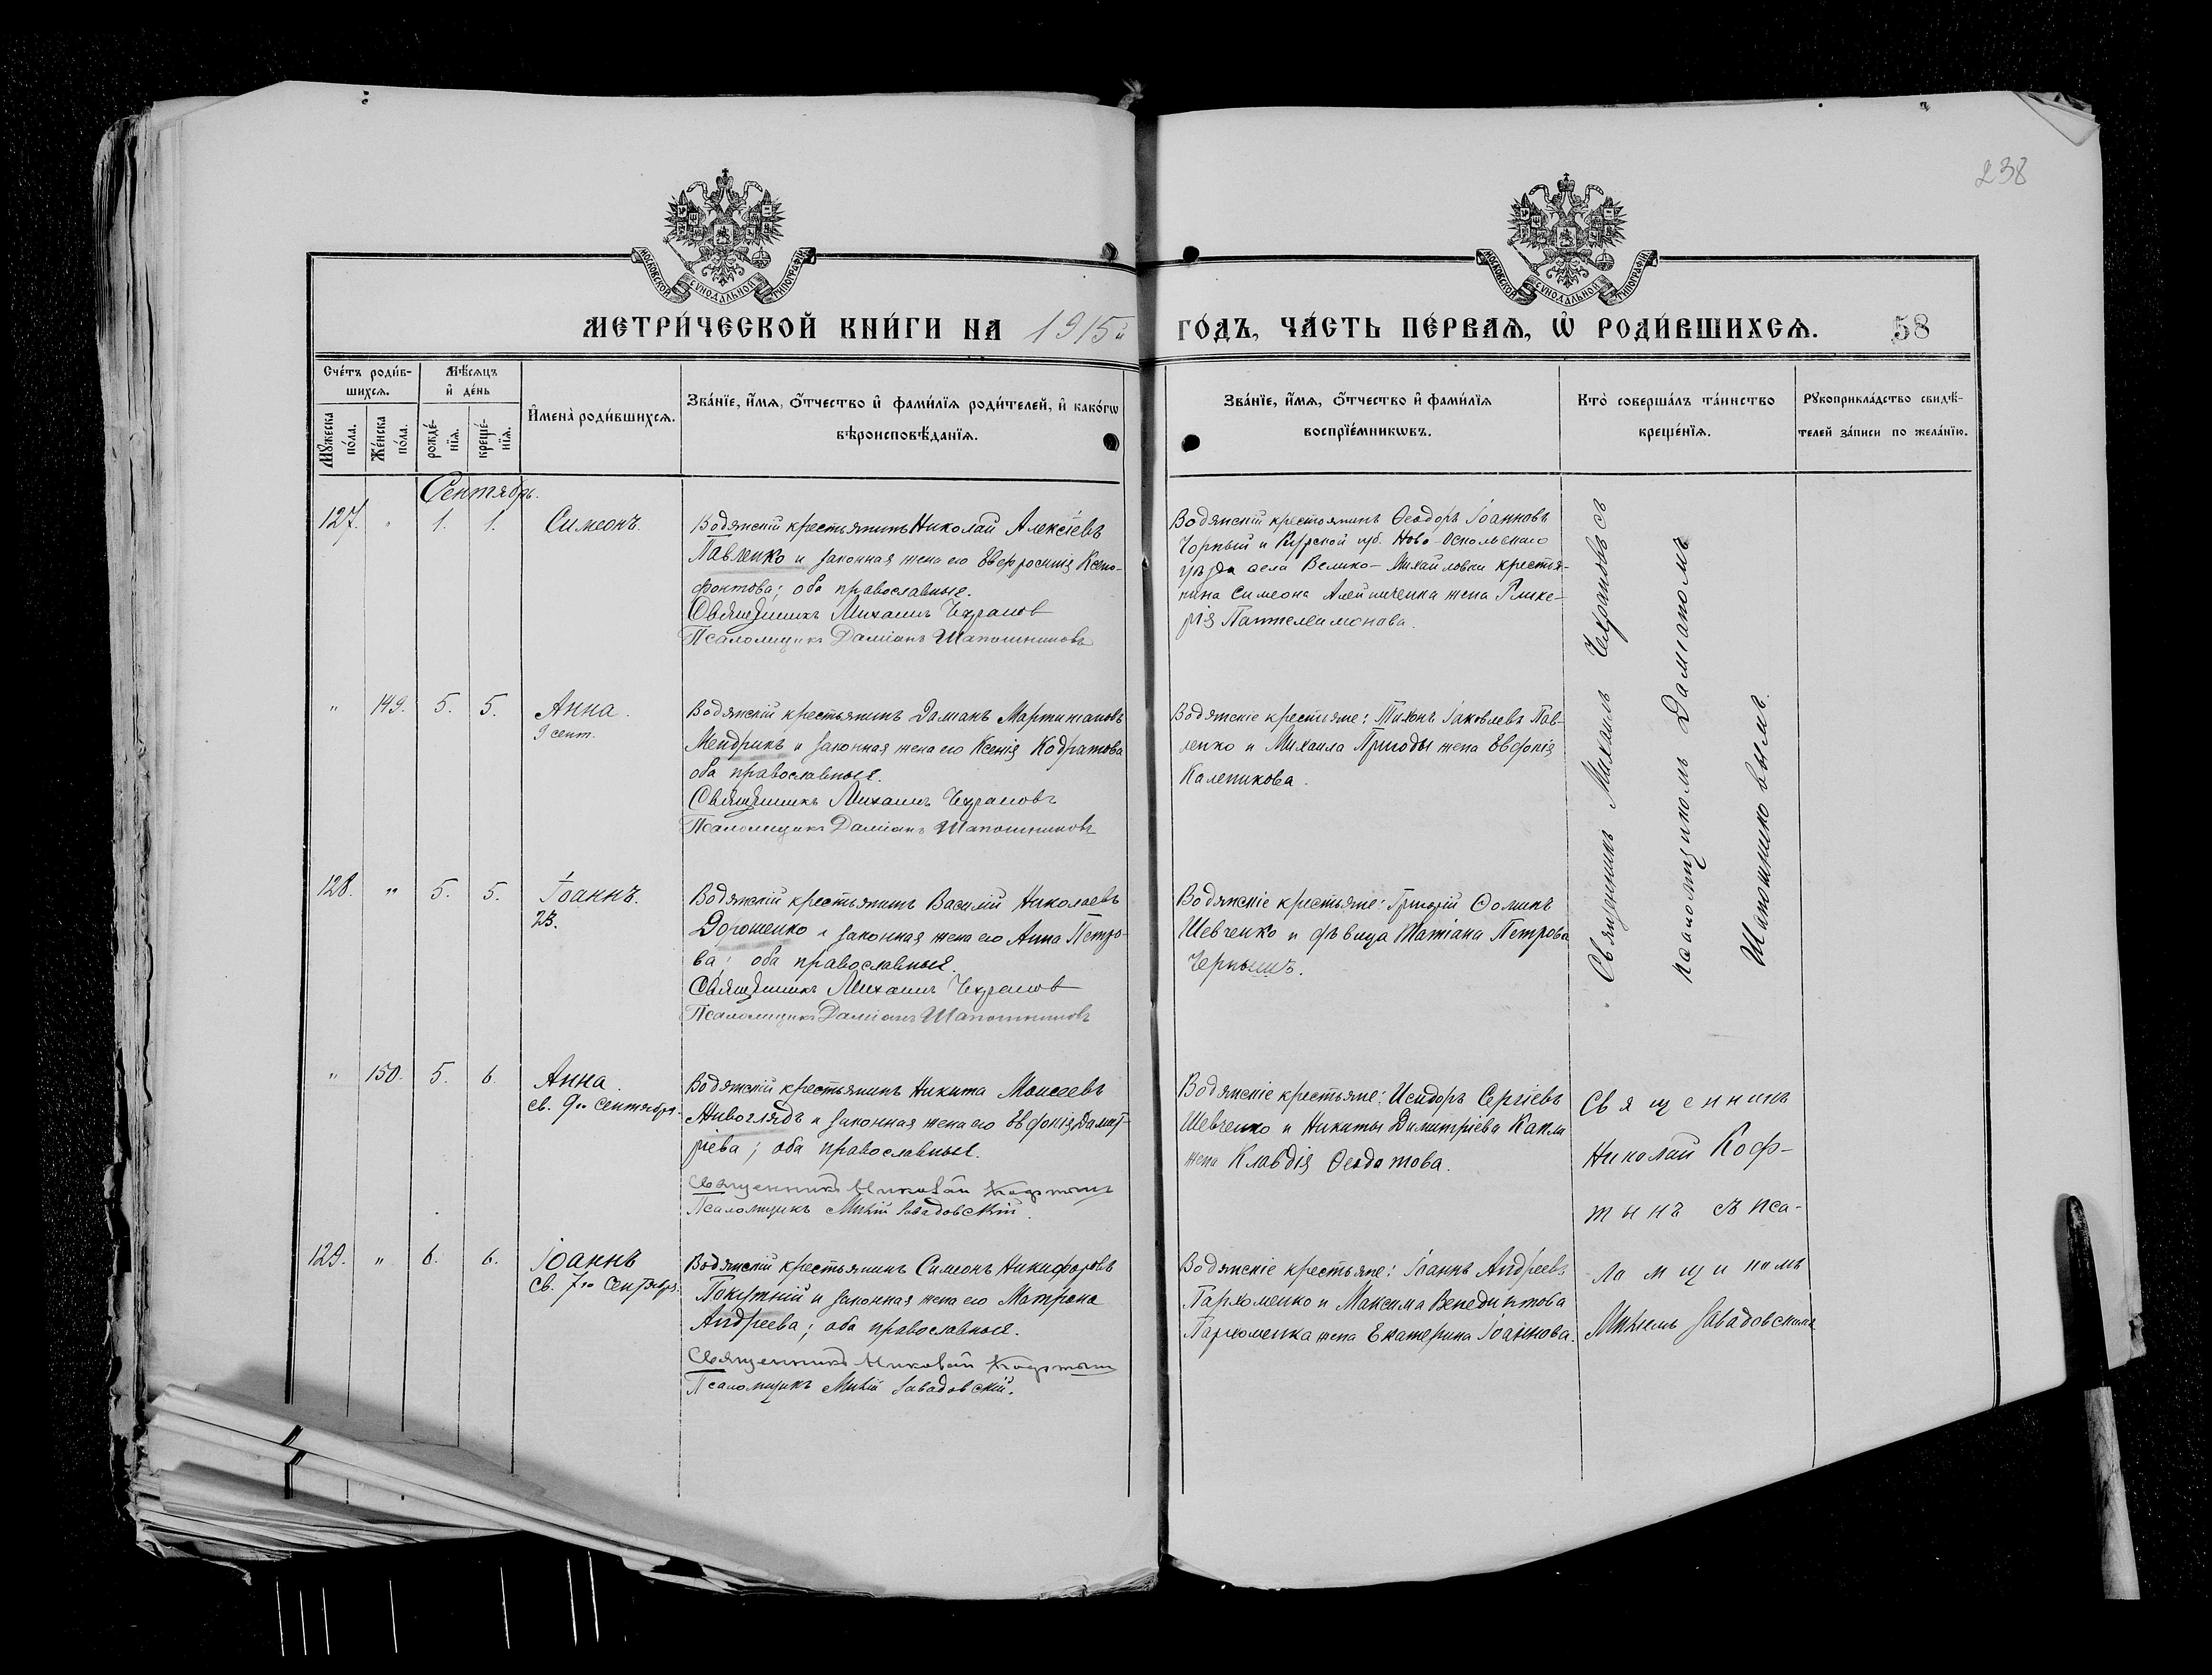 238
МОСКОВСКОЙ СѴНОДАЛЬНОЙ ТИПОГРАФІИ
МОСКОВСКОЙ СѴНОДАЛЬНОЙ ТИПОГРАФІИ
МЕТРИ́ЧЕСКОЙ КНИ́ГИ НА 1915й ГО́ДЪ, ЧА́СТЬ ПЕ́РВАѦ, Ѡ҆ РОДИ́ВШИХСѦ. 58
Сче́тъ роди́в-
шихсѧ.
Мꙋ́жеска по́ла.
Же́нска по́ла.
Мѣ́сѧцъ
и҆ де́нь
рожде́-
нїѧ.
креще́-
нїѧ.
И҆мена̀ роди́вшихсѧ.
Зва́нїе, и҆́мѧ, ѻ҆́тчество и҆ фами́лїѧ роди́телей, и҆ како́гѡ
вѣроисповѣ́данїѧ.
Зва́нїе, и҆́мѧ, ѻ҆́тчество и҆ фами́лїѧ
воспрїе́мникѡвъ.
Кто̀ соверша́лъ та́инство
креще́нїѧ.
Рꙋкоприкла́дство свидѣ́-
телей за́писи по жела́нїю.
Сентябрь.
127. " 1. 1. Симеонъ.
Водянскій крестьянинъ Николай Алексіевъ
Павленко и законная жена его Евфросинія Ксено-
фонтова; оба православные.
Священникъ Михаилъ Чехрановъ
Псаломщикъ Даміанъ Шапошниковъ
Водянскій крестьянинъ Ѳеодоръ Іоанновъ
Чорный и Курской губ. Ново-Оскольскаго
уѣзда села Велико-Михайловки крестья-
нина Симеона жена Глике-
рія Пантелеимонова.
Священникъ Михаилъ Чехрановъ съ
псаломщикомъ Даміаномъ
Шапошниковымъ.
" 149. 5. 5. Анна.
9 сент.
Водянскій крестьянинъ Даміанъ Мартиніановъ
Мендрикъ и законная жена его Ксенія Кодратова
оба православные.
Священникъ Михаилъ Чехрановъ
Псаломщикъ Даміанъ Шапошниковъ
Водянскіе крестьяне: Тихонъ Іаковлевъ Пав-
ленко и Михаила Пригоды жена Евфонія
Каленикова.
128. " 5. 5. Іоаннъ.
23.
Водянскій крестьянинъ Василій Николаевъ
Дорошенко и законная жена его Анна Петро-
ва; оба православные.
Священникъ Михаилъ Чехрановъ
Псаломщикъ Даміанъ Шапошниковъ
Водянскіе крестьяне: Григорій Ѳоминъ
Шевченко и дѣвица Татіана Петрова
Чернышъ.
" 150. 5. 6. Анна.
св. 9го Сентября.
Водянскій крестьянинъ Никита Моисеевъ
Живоглядъ и законная жена его Евфонія Димит-
ріева; оба православные.
Священникъ Николай Кофтынъ
Псаломщикъ Завадовскій.
Водянскіе крестьяне: Исидоръ Сергіевъ
Шевченко и Никиты Димитріева Капли
жена Клавдія Ѳеодотова.
Священникъ
Николай Коф-
тынъ съ пса-
ломщикомъ
Завадовскимъ
129. " 6. 6. Іоаннъ
Св. 7го Сентября.
Водянскій крестьянинъ Симеонъ Никифоровъ
Покутній и законная жена его Матрона
Андреева; оба православные.
Священникъ Николай Кофтынъ
Псаломщикъ Завадовскій.
Водянскіе крестьяне: Іоаннъ Андреевъ
Пархоменко и Максима Венедиктова
Пархоменка жена Екатерина Іоаннова.